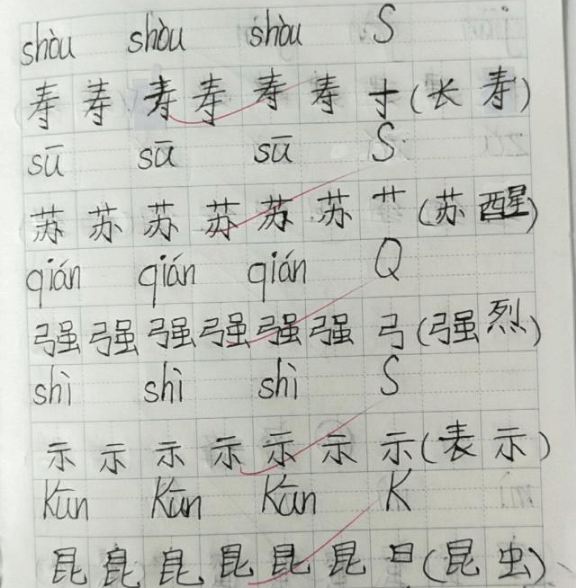 shòu shòu shòu S
寿 寿 寿 寿 寿 寿 寸(长 寿)
sū sū sū S
苏 苏 苏 苏 苏 苏 艹(苏 醒)
qián qián qián Q
强 强 强 强 强 强 弓(强 烈)
shì shì shì S
示 示 示 示 示 示 示(表 示)
Kūn Kūn Kūn K
昆 昆 昆 昆 昆 昆 日(昆 虫)